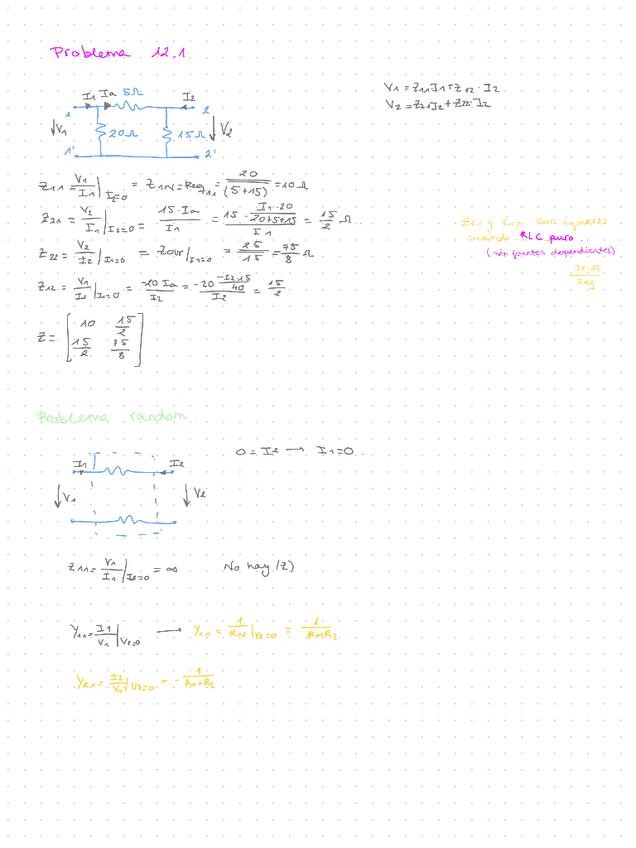 Problema 12.1
I1 Ia 5Ω I2
1 2
V1 20Ω 15Ω V2
1' 2'
V1 = Z11 I1 + Z12 · I2
V2 = Z21 I2 + Z22 · I2
Z11 = V1/I1 |I2=0 = ZIN = Req11 = 20/(5+15) = 10 Ω
Z21 = V2/I1 |I2=0 = 15·Ia/I1 = 15 · (I1·20/(20+5+15))/I1 = 15/2 Ω
Z22 = V2/I2 |I1=0 = Zout |I1=0 = 25/15 = 75/8 Ω
Z12 = V1/I2 |I1=0 = -20 Ia/I2 = -20 (-I2·15/40)/I2 = 15/2
son iguales
cuando RLC puro
(sin fuentes dependientes)
I2·15/Zeq
Z = [10 15/2
15/2 75/8]
Problema random
I1 I2
V1 V2
0 = I2 → I1 = 0
Z11 = V1/I1 |I2=0 = ∞ No hay (Z)
Y11 = I1/V1 |V2=0 → Y11 = 1/RIN |V2=0 = 1/R1+R2
Y21 = I2/V1 |V2=0 = - 1/R1+R2